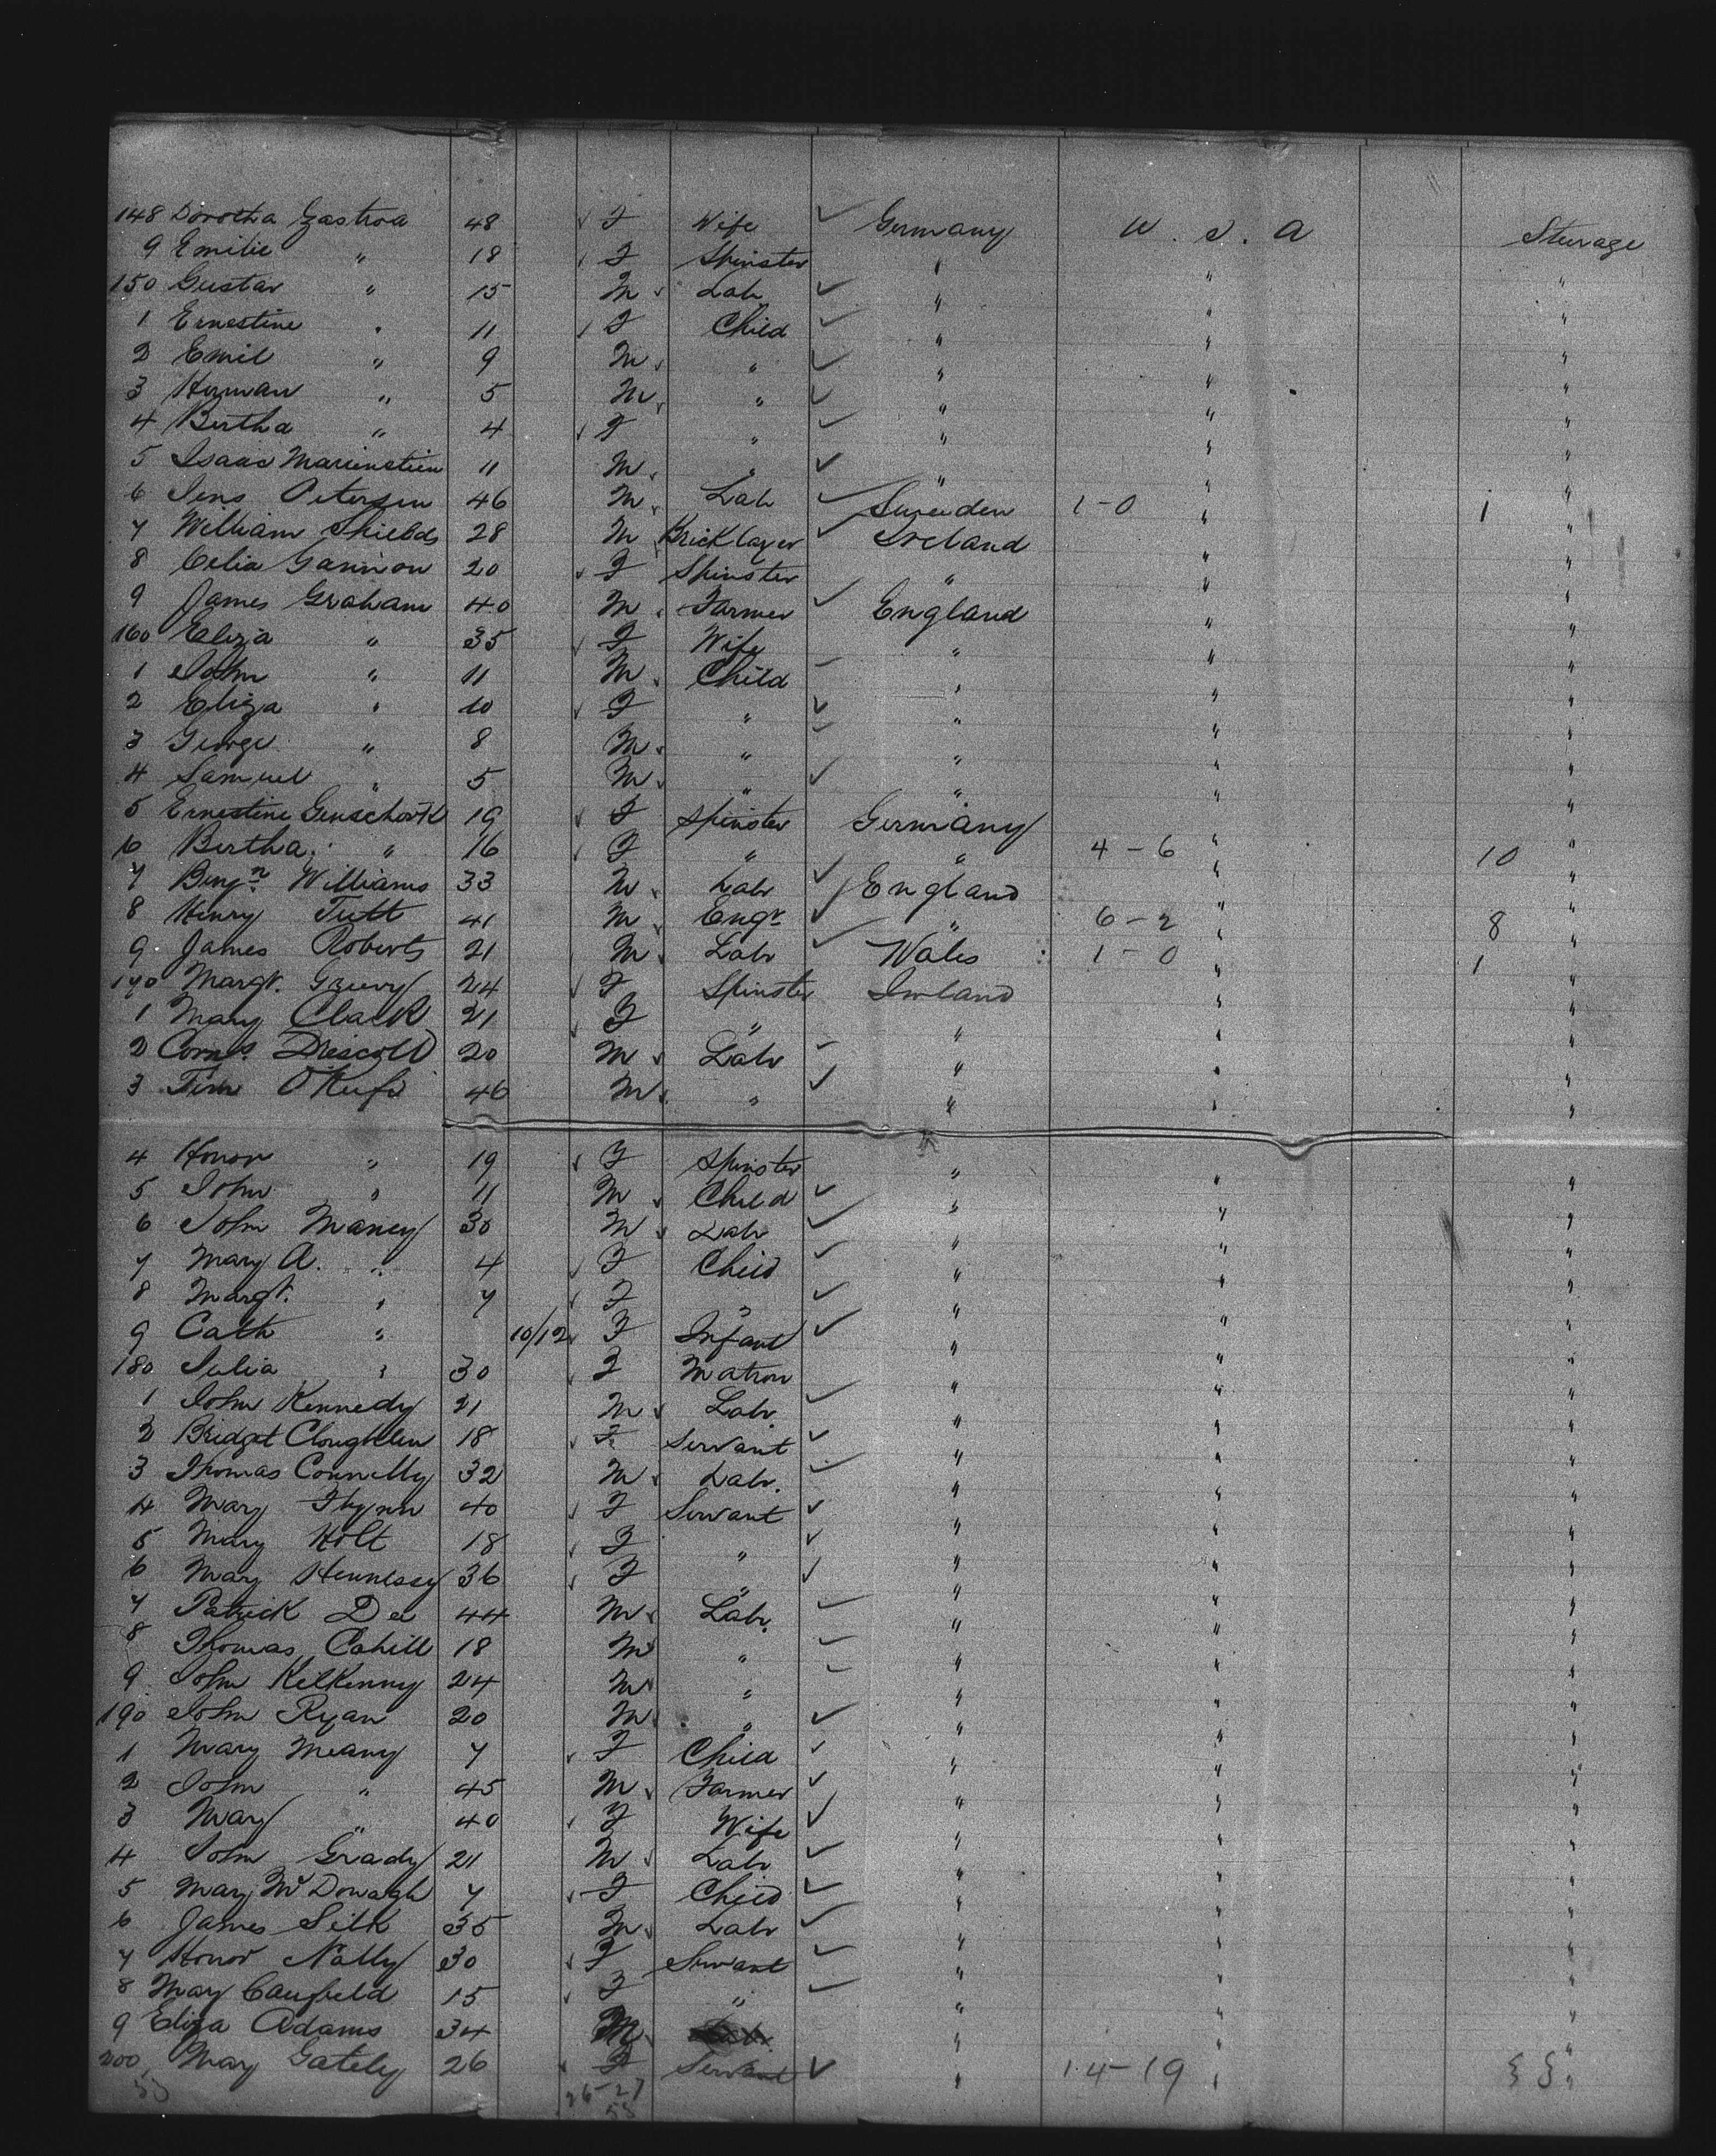 148 Dorotha Gastroa 48 F Wife Germany U. S. A Steerage
9 Emilie " 18 F Spinster " " "
150 Gustav " 15 M Lab " " "
1 Ernestine " 11 F Child " " "
2 Emil " 9 M " " " "
3 Herman " 5 M " " " "
4 Bertha " 4 F " " " "
5 Isaac Marienstein 11 M " " " "
6 Jens Petersen 46 M Lab Sweeden 1-0 " 1 "
7 William Shields 28 M Bricklayer Ireland " "
8 Celia Gannon 20 F Spinster " " "
9 James Graham 40 M Farmer England " "
160 Eliza " 35 F Wife " " "
1 John " 11 M Child " " "
2 Eliza " 10 F " " " "
3 George " 8 M " " " "
4 Samuel " 5 M " " " "
5 Ernestine 19 F Spinster Germany " "
6 Bertha " 16 F " " 4-6 " 10 "
7 Benjn Williams 33 M Labr England " "
8 Henry Tutt 41 M Engr " 6-2 " 8 "
9 James Roberts 21 M Labr Wales 1-0 " 1 "
170 Margt. 24 F Spinster Ireland " "
1 Mary Clark 21 F " " " "
2 Corns Driscoll 20 M Labr " " "
3 Tim O'Keefe 46 M " " " "
4 Honor " 19 F Spinster " " "
5 John " 11 M Child " " "
6 John Maney 30 M Labr " " "
7 Mary A. " 4 F Child " " "
8 Margt. " 7 F " " " "
9 Cath " 10/12 F Infant " " "
180 Julia " 30 F Matron " " "
1 John Kennedy 21 M Labr. " " "
2 Bridget Cloughlen 18 F Servant " " "
3 Thomas Connelly 32 M Labr. " " "
4 Mary Flynn 40 F Servant " " "
5 Mary Holt 18 F " " " "
6 Mary Hennessy 36 F " " " "
7 Patrick Dee 44 M Labr. " " "
8 Thomas Cahill 18 M " " " "
9 John Kilkenny 24 M " " " "
190 John Ryan 20 M " " " "
1 Mary Meany 7 F Child " " "
2 John " 45 M Farmer " " "
3 Mary " 40 F Wife " " "
4 John Grady 21 M Labr " " "
5 Mary McDonagh 7 F Child " " "
6 James Silk 35 M Labr " " "
7 Honor Nally 30 F Servant " " "
8 May Caufield 15 F " " " "
9 Eliza Adams 34 M " " "
200 May Gately 26 F Servant " 14-19 " "
53 26-27
53